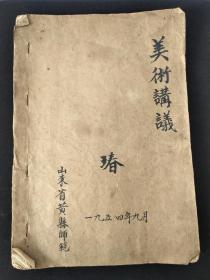 美術講議
瑃
一九五四年九月
山东省黄縣師範